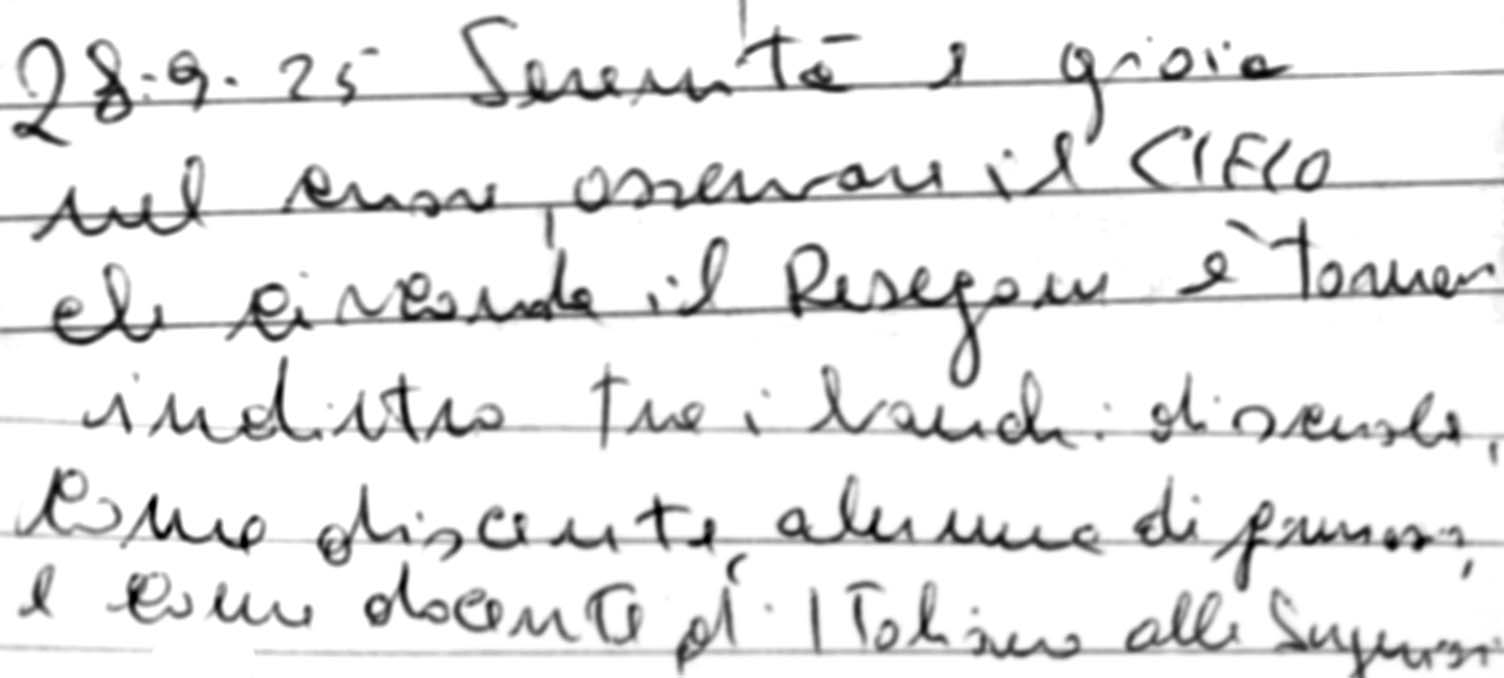 28.9.25 Serenità e gioia
nel cuore, osservare il CIELO
che circonda il Resegone è tornare
indietro tra i banchi di scuola,
come discente, alunna di primaria,
e come docente d'Italiano alle Superiori